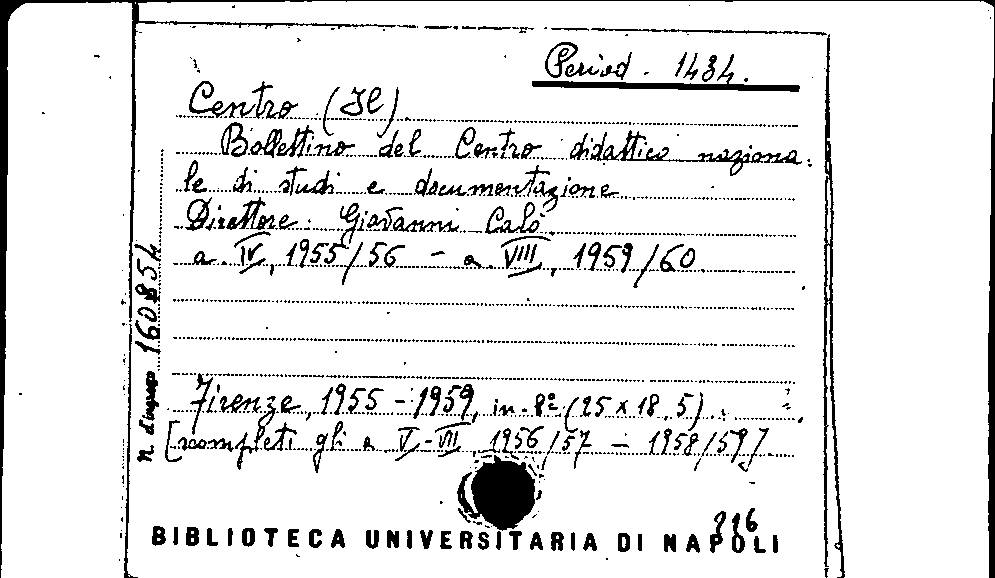 Period. 1434.
Centro (Il).
Bollettino del Centro didattico naziona-
le di studi e documentazione
Direttore: Giovanni Calò.
a. IV, 1955/56 - a. VIII, 1959/60.
n. d'ingresso 160854
Firenze, 1955 - 1959, in-8º (25 x 18,5).
[incompleti gli a V-VII, 1956/57 - 1958/59].
216
BIBLIOTECA UNIVERSITARIA DI NAPOLI